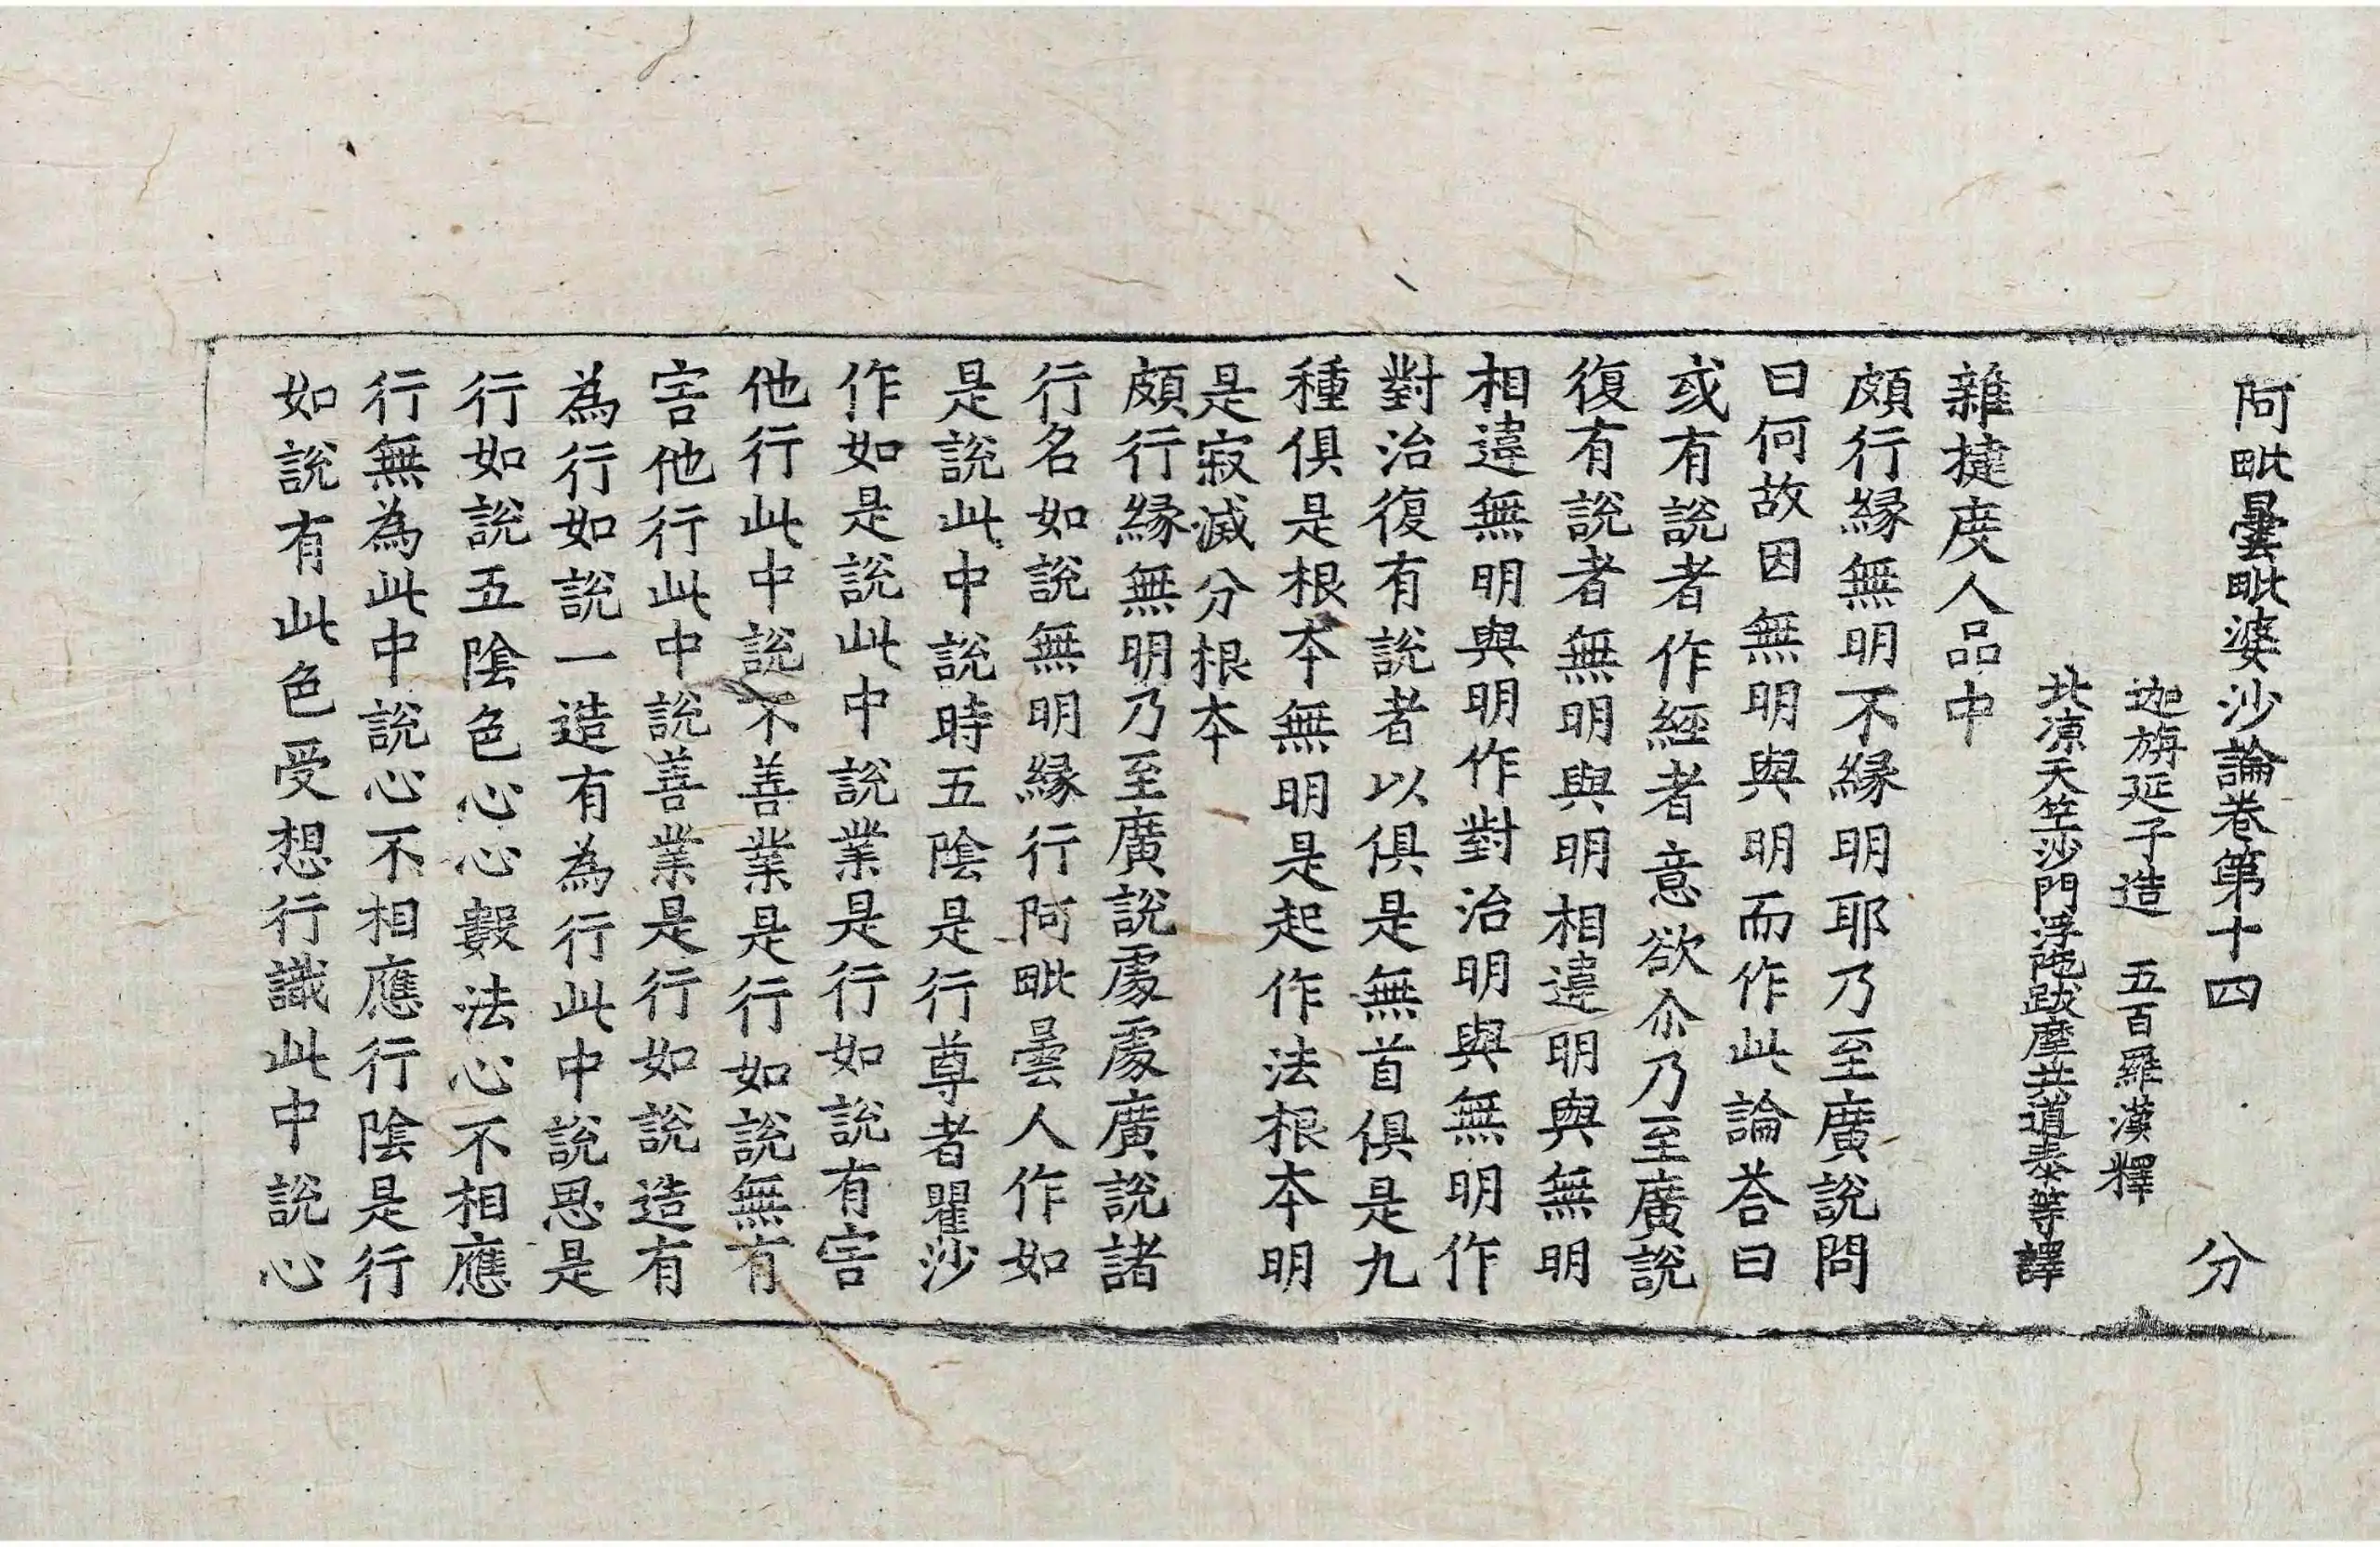 阿毗曇毗婆沙論卷第十四 分
迦旃延子造 五百羅漢釋
北涼天竺沙門浮陁跋摩共道泰等譯
雜揵度人品中
頗行縁無明不縁明耶乃至廣説問
曰何故因無明與明而作此論荅曰
或有説者作經者意欲尒乃至廣説
復有説者無明與明相違明與無明
相違無明與明作對治明與無明作
對治復有説者以俱是無首俱是九
種俱是根本無明是起作法根本明
是寂滅分根本
頗行縁無明乃至廣説處處廣説諸
行名如説無明縁行阿毗曇人作如
是説此中説時五陰是行尊者瞿沙
作如是説此中説業是行如説有害
他行此中説不善業是行如説無有
害他行此中説善業是行如説造有
為行如説一造有為行此中説思是
行如説五陰色心心數法心不相應
行無為此中説心不相應行陰是行
如説有此色受想行識此中説心